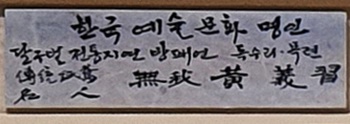 한국 예술 문화 명인
달구벌 전통지연 방패연 독수리·목련
傳統紙鳶
名人 無我 黃義習